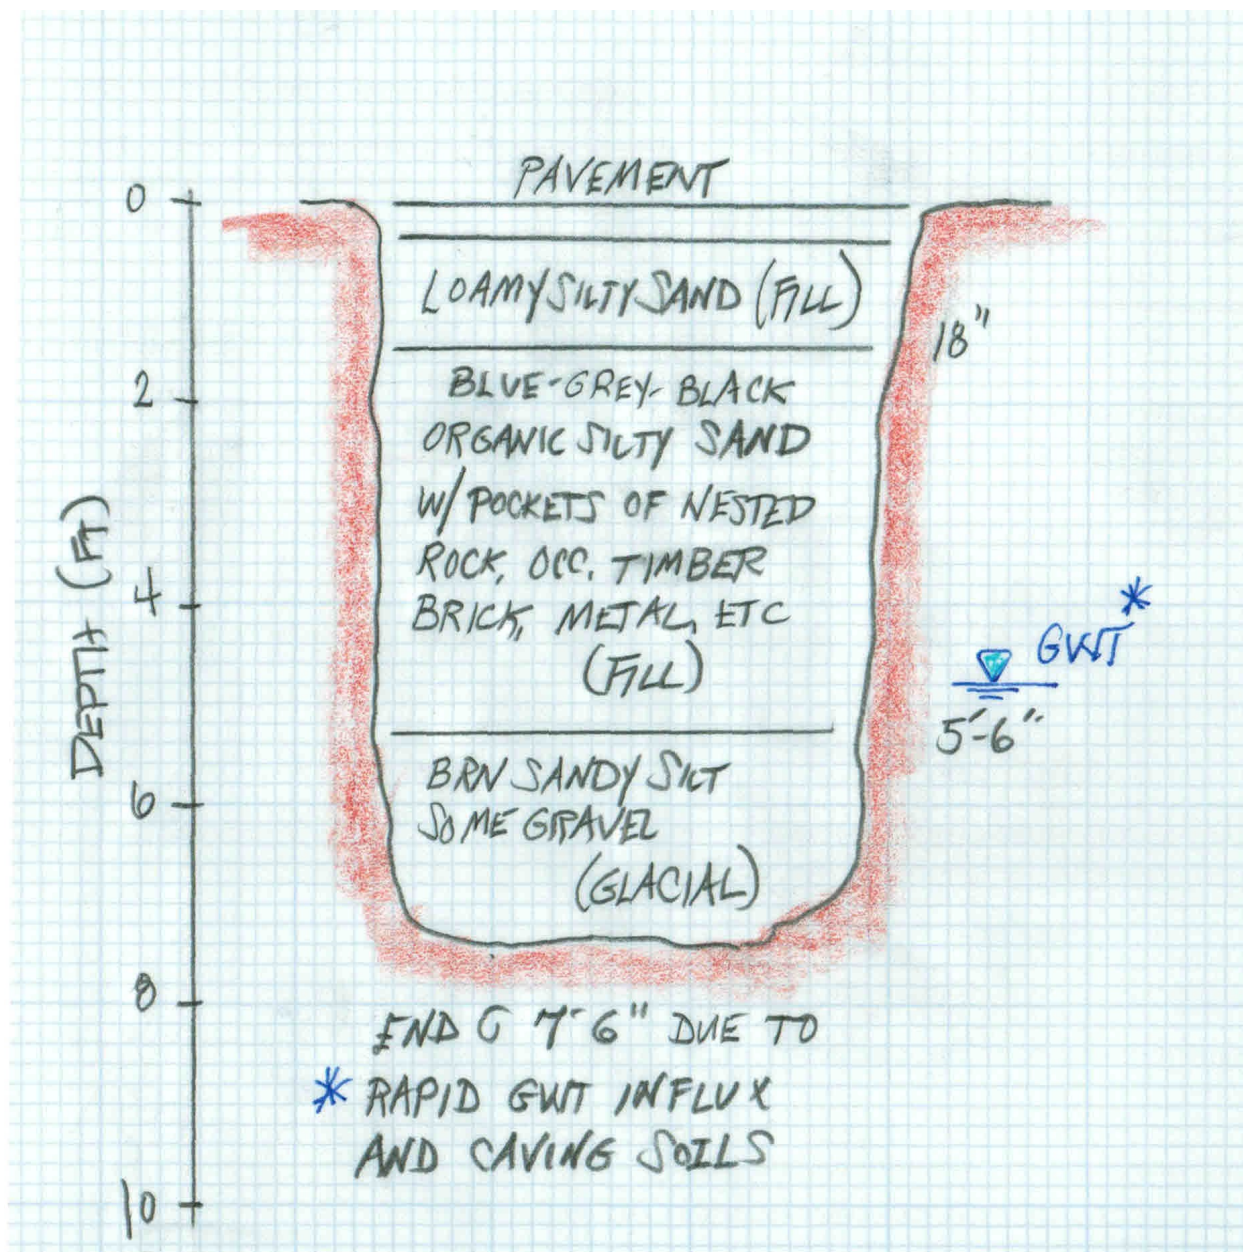 PAVEMENT
0
LOAMY SILTY SAND (FILL)
18"
BLUE-GREY-BLACK
2
ORGANIC SILTY SAND
W/ POCKETS OF NESTED
ROCK, OCC. TIMBER
4
BRICK, METAL, ETC
(FILL)
DEPTH (FT)
GWT*
5'-6"
BRN SANDY SILT
6
SOME GRAVEL
(GLACIAL)
8
END @ 7'-6" DUE TO
* RAPID GWT INFLUX
AND CAVING SOILS
10